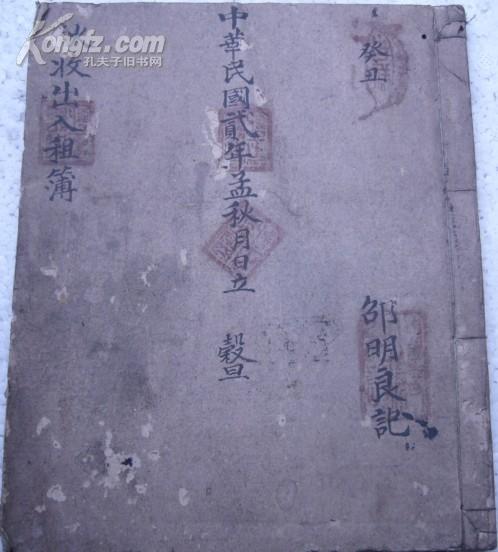 癸丑
邵明良記
中華民國貳年孟秋月日立 穀旦
收出入租簿
Kongfz.com
孔夫子旧书网